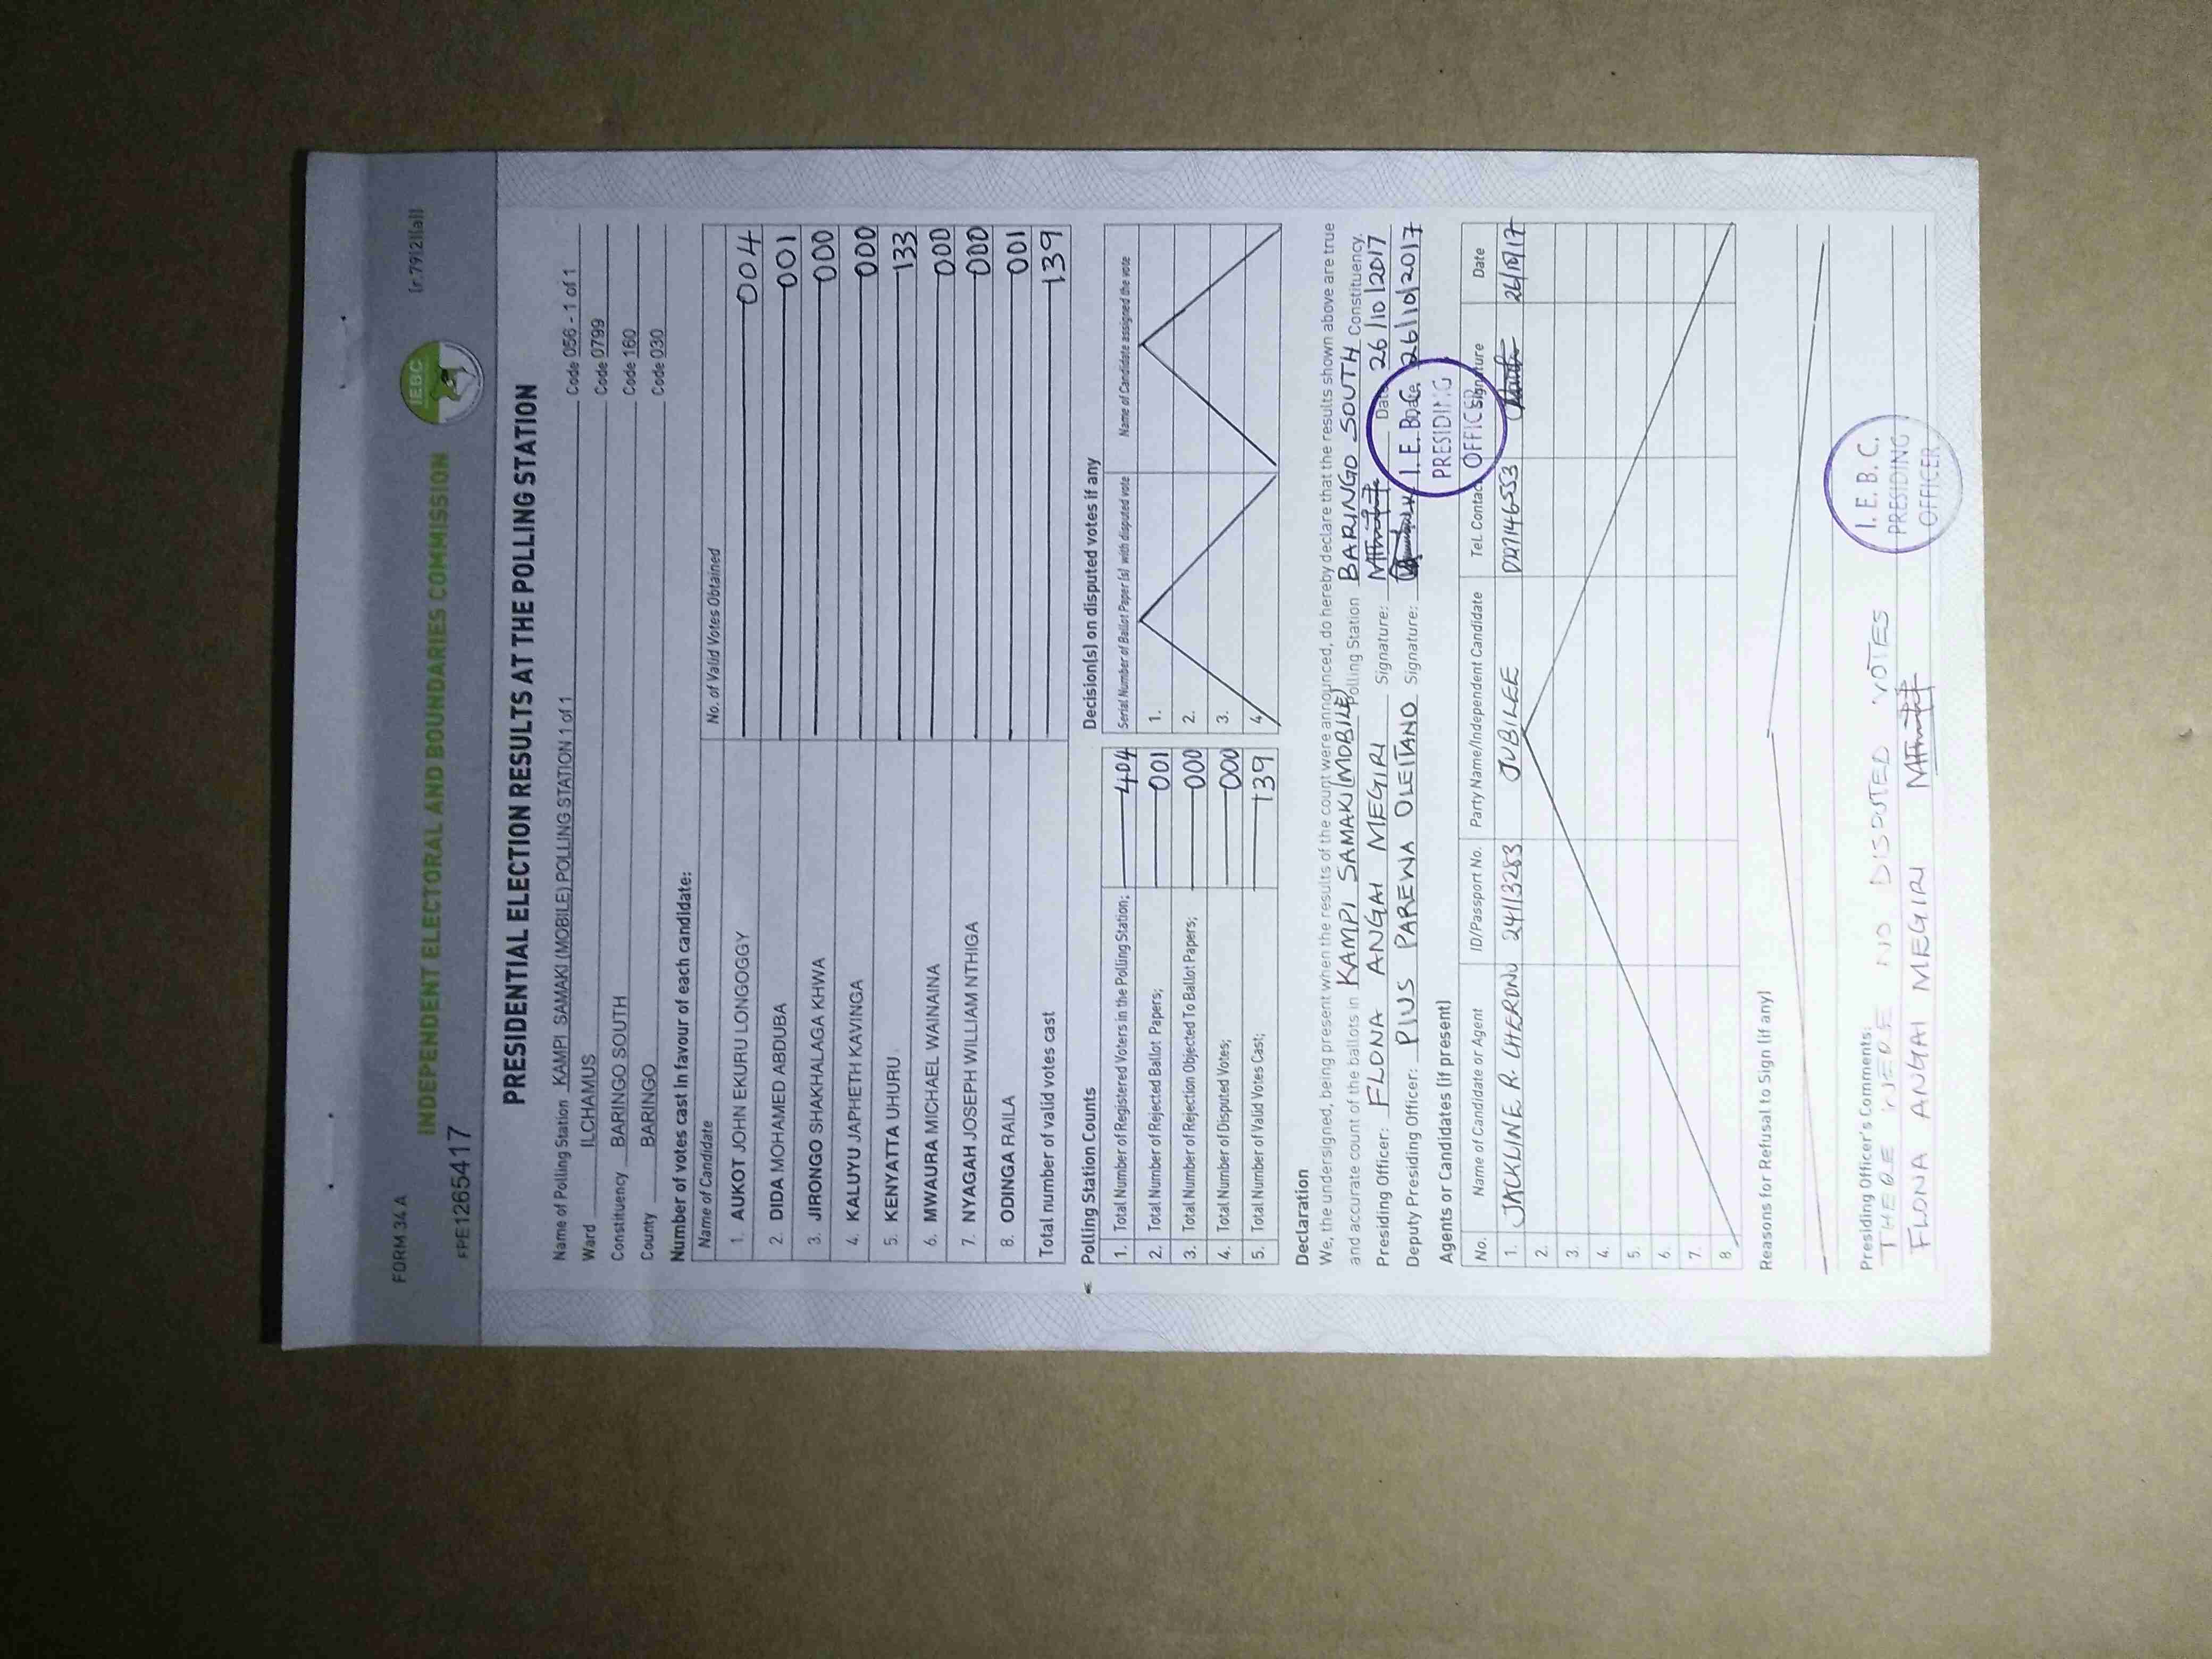 FORM 34 A
(r.79(2)(a))
INDEPENDENT ELECTORAL AND BOUNDARIES COMMISSION
IEBC
PE1265417
PRESIDENTIAL ELECTION RESULTS AT THE POLLING STATION
Name of Polling Station KAMPI SAMAKI (MOBILE) POLLING STATION 1 of 1 Code 056 - 1 of 1
Ward ILCHAMUS Code 0799
Constituency BARINGO SOUTH Code 160
County BARINGO Code 030
Number of votes cast in favour of each candidate:
Name of Candidate No. of Valid Votes Obtained
1. AUKOT JOHN EKURU LONGOGGY 004
2. DIDA MOHAMED ABDUBA 001
3. JIRONGO SHAKHALAGA KHWA 000
4. KALUYU JAPHETH KAVINGA 000
5. KENYATTA UHURU 133
6. MWAURA MICHAEL WAINAINA 000
7. NYAGAH JOSEPH WILLIAM NTHIGA 000
8. ODINGA RAILA 001
Total number of valid votes cast 139
Polling Station Counts
1. Total Number of Registered Voters in the Polling Station; 404
2. Total Number of Rejected Ballot Papers; 001
3. Total Number of Rejection Objected To Ballot Papers; 000
4. Total Number of Disputed Votes; 000
5. Total Number of Valid Votes Cast; 139
Decision(s) on disputed votes if any
Serial Number of Ballot Paper(s) with disputed vote Name of Candidate assigned the vote
1.
2.
3.
4.
Declaration
We, the undersigned, being present when the results of the count were announced, do hereby declare that the results shown above are true
and accurate count of the ballots in KAMPI SAMAKI (MOBILE) Polling Station BARINGO SOUTH Constituency.
Presiding Officer: FLONA ANGAI MEGIRI Signature: Date 26/10/2017
Deputy Presiding Officer: PIUS PAREWA OLEITANO Signature: Date 26/10/2017
I.E.B.C.
PRESIDING
OFFICER
Agents or Candidates (if present)
No. Name of Candidate or Agent ID/Passport No. Party Name/Independent Candidate Tel. Contact Signature Date
1. JACKLINE R. CHERONO 24113283 JUBILEE 26/10/17
2.
3.
4.
5.
6.
7.
8.
Reasons for Refusal to Sign (if any)
Presiding Officer's Comments:
THERE WERE NO DISPUTED VOTES
FLONA ANGAI MEGIRI
I.E.B.C.
PRESIDING
OFFICER